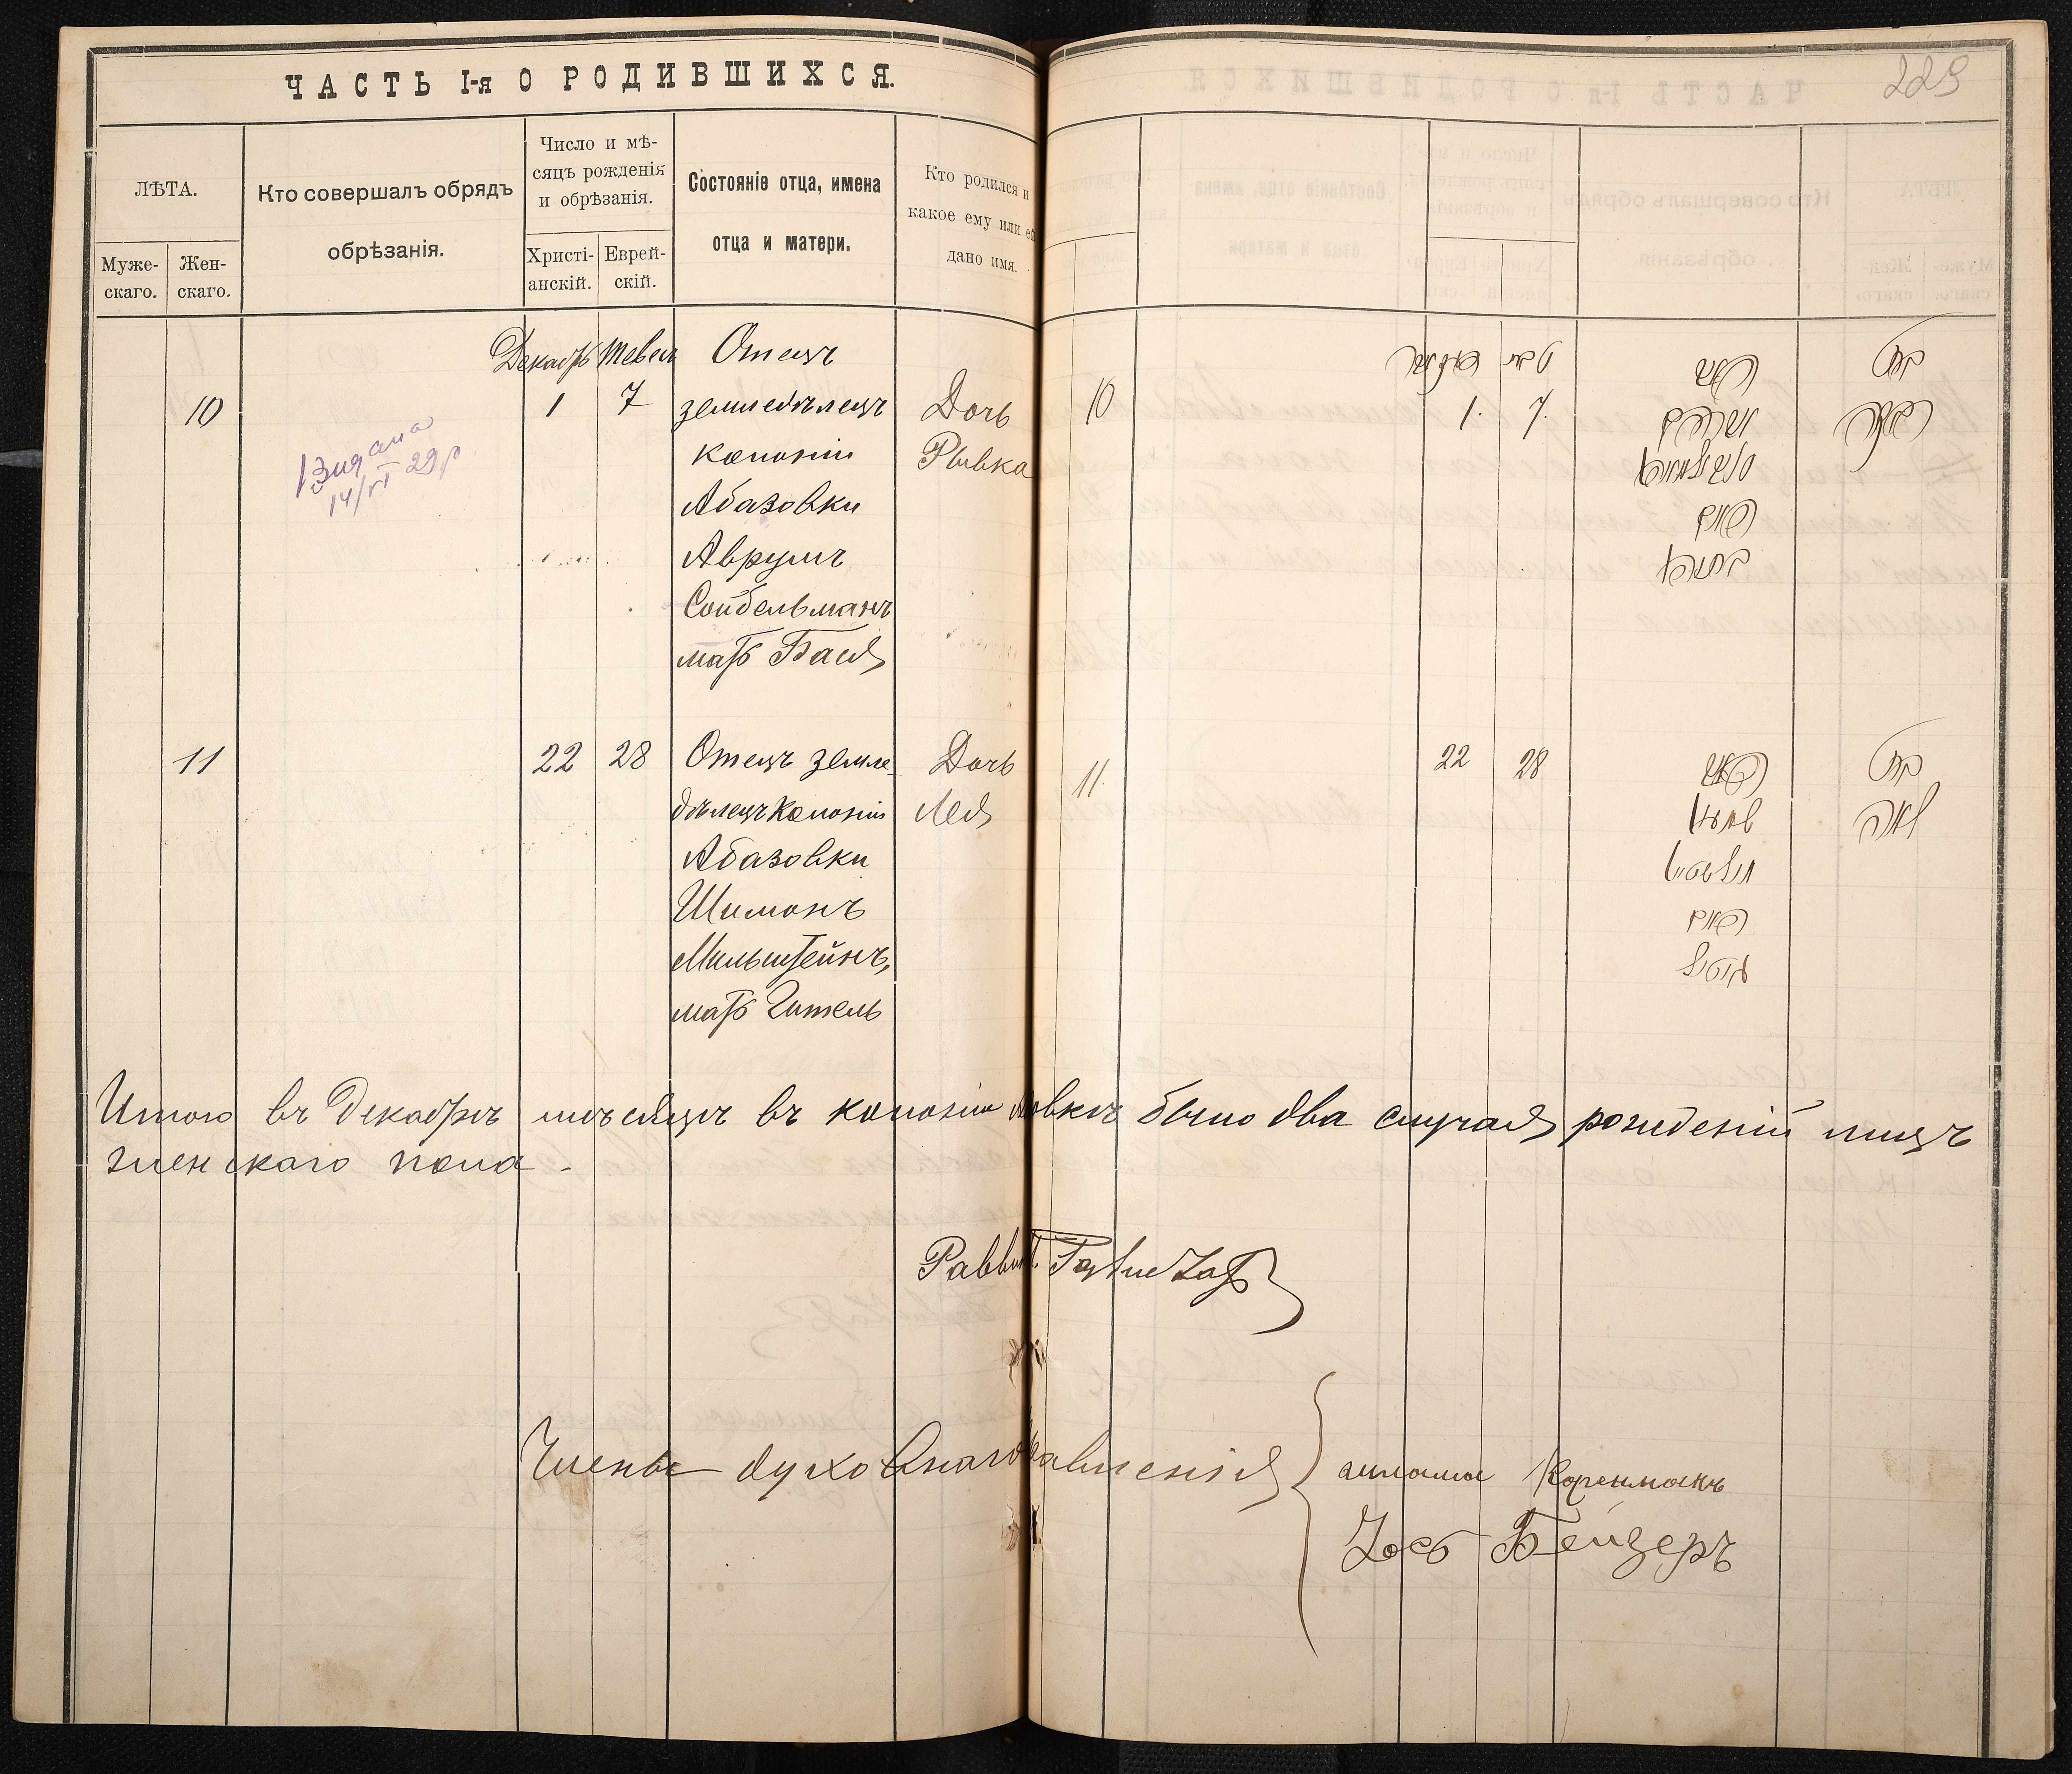 ЧАСТЬ I-я О РОДИВШИХСЯ.
229
ЛѢТА.
Муже-
скаго.
Жен-
скаго.
Кто совершалъ обрядъ
обрѣзанія.
Число и мѣ-
сяцъ рожденія
и обрѣзанія.
Христі-
анскій.
Еврей-
скій.
Состояніе отца, имена
отца и матери.
Кто родился и
какое ему или ей
дано имя.
Декабрь Тевесъ Отецъ
10 1 7 земледѣлецъ Дочь
колоніи Рывка
Абазовки
Аврумъ
Сойбельманъ
мать Бася
14/VI 29 р
10 1. 7.
האב
אברהם
סויבעלמאן
האם
באסיא
בת
רבקה
11 22 28 Отецъ земле- Дочь
дѣлецъ колоніи Лея
Абазовки
Шимонъ
Мильштейнъ,
мать Гитель
11. 22 28
האב
שמעון
מילשטיין
האם
גיטיל
בת
לאה
Итого въ Декабрѣ мѣсяцѣ въ колоніи было два случая рожденій лицъ
женскаго пола.
Раввинъ
Члены духовнаго правленія
Коренманъ
Бейдеръ